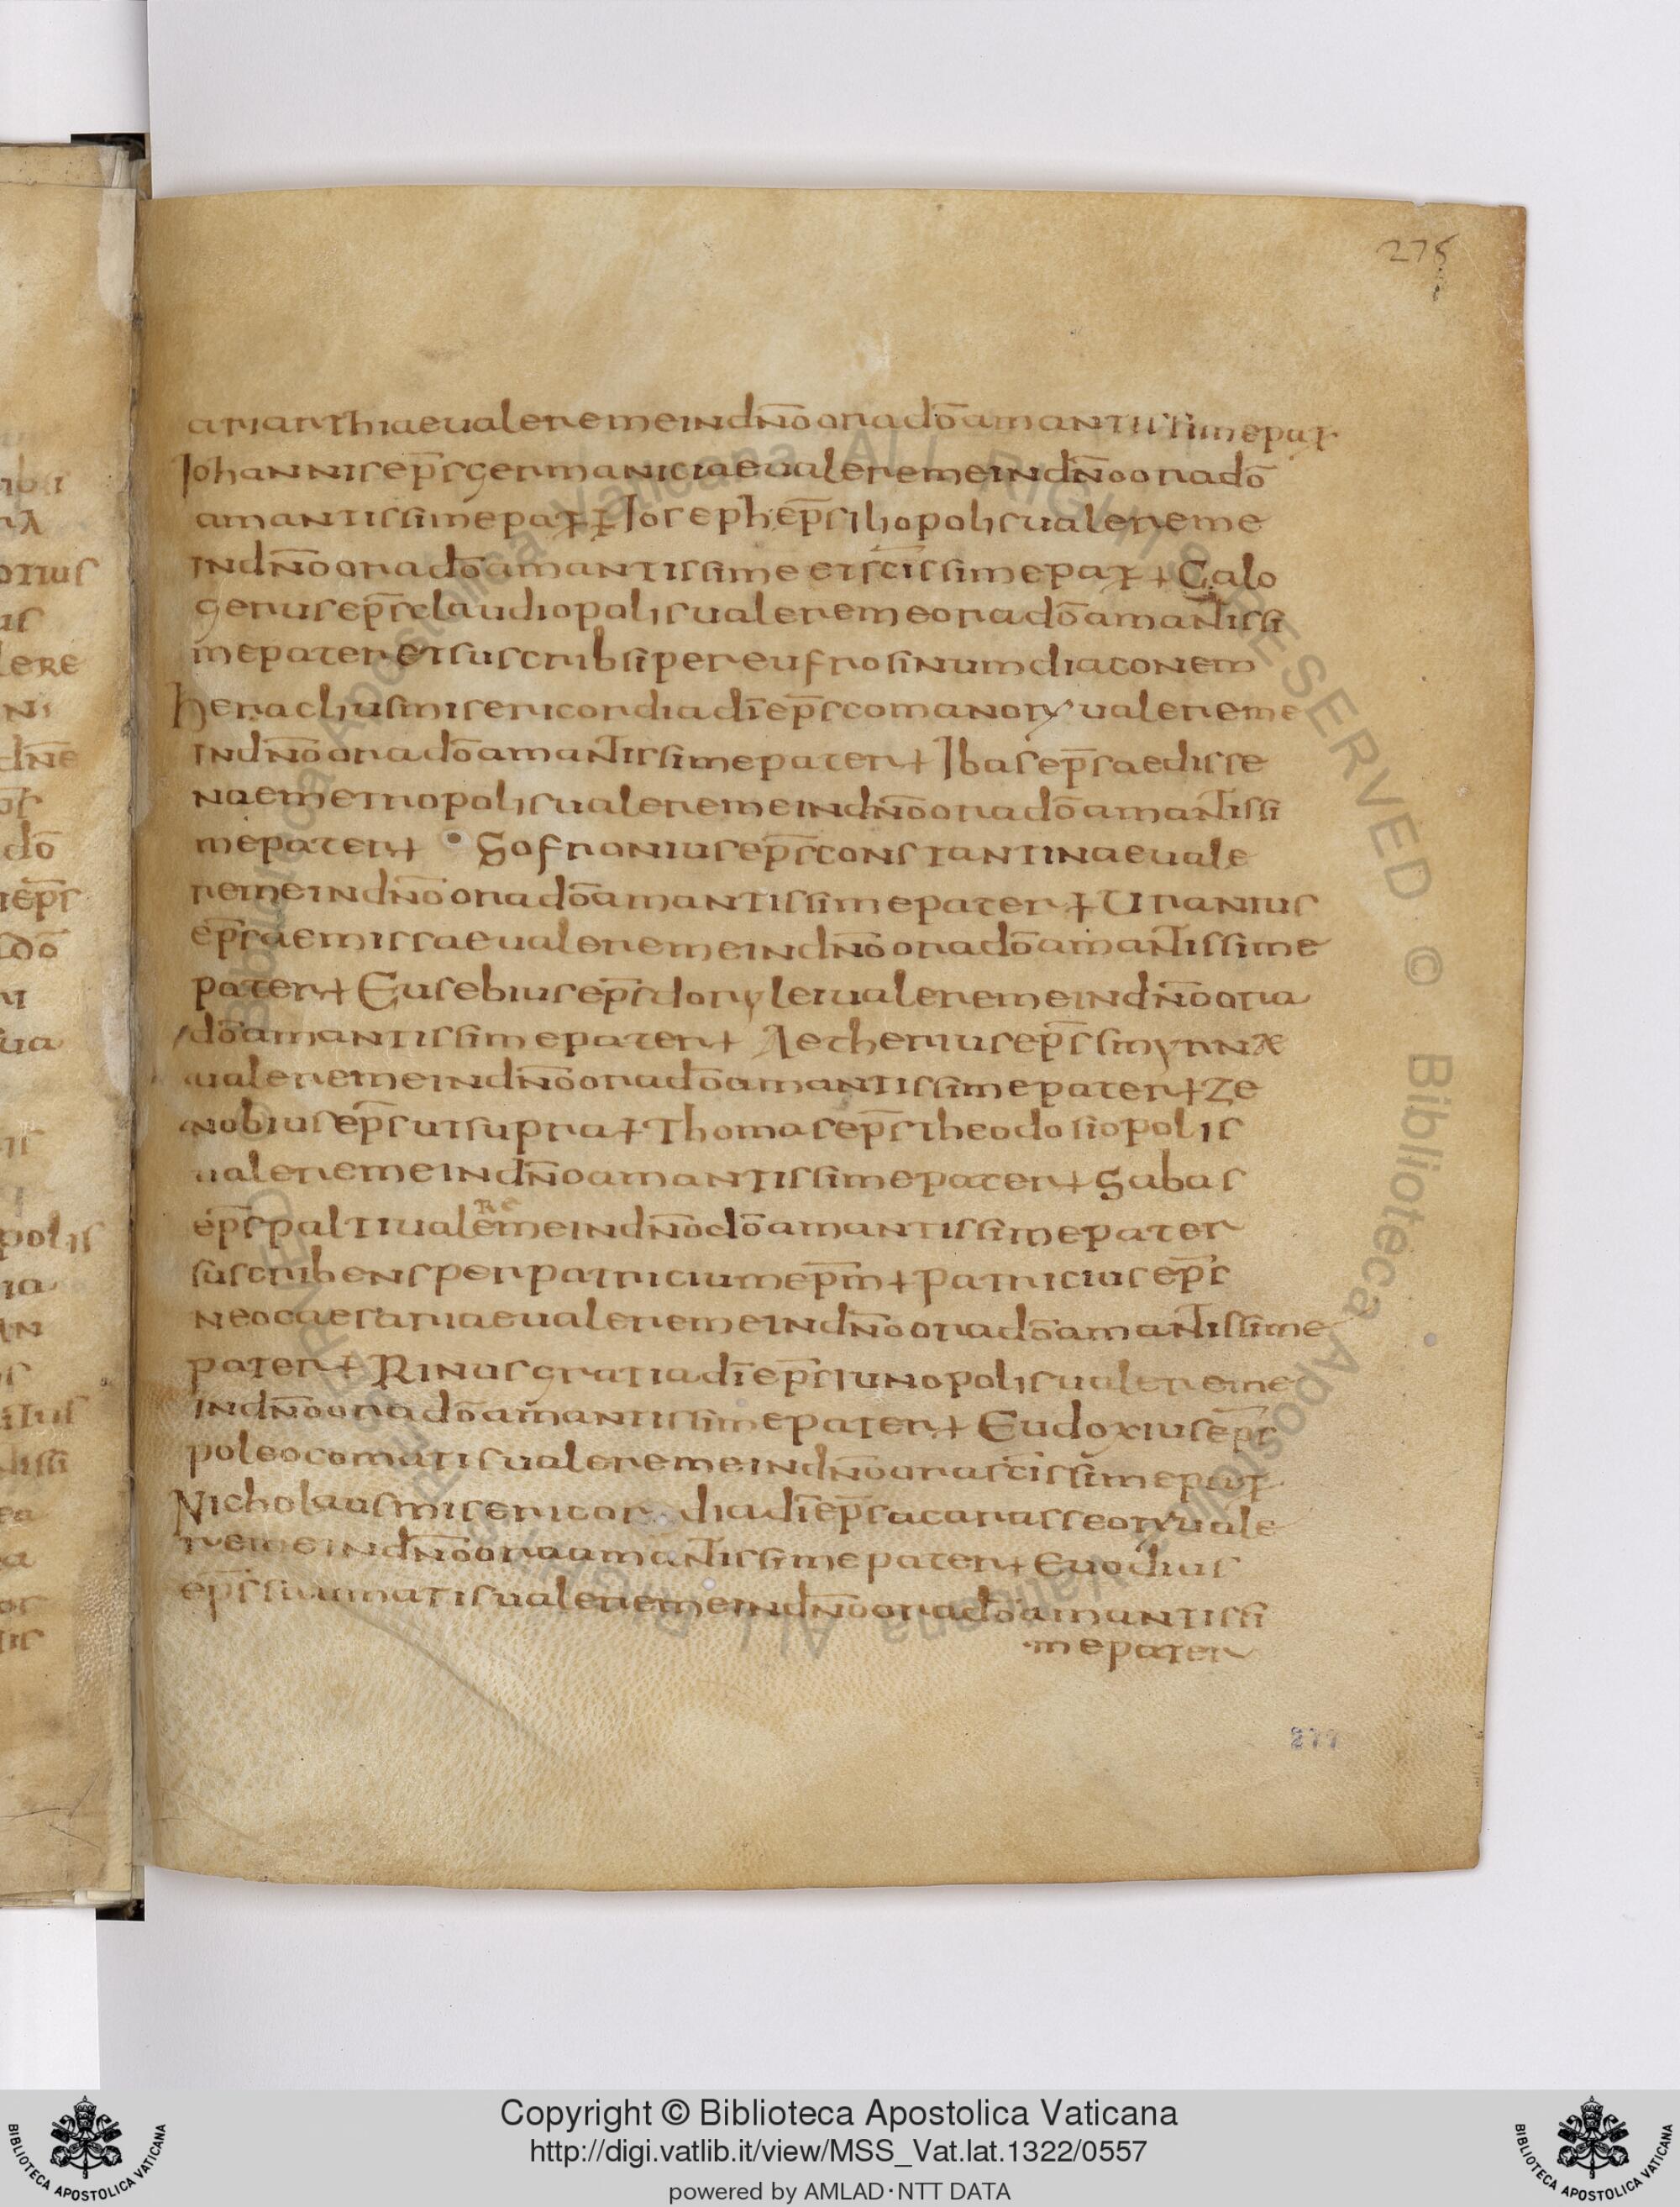 275
arianthiaeualeremeindn̄ooradōamantissimepat̄
Johannisep̄sgermaniciaeualeremeindn̄ooradō
amantissimepat̄ ☧ Josephep̄siliopolisualereme
indn̄ooradōamantissimeetsc̄issimepat̄ + Calo
gerusep̄sclaudiopolisualeremeoradōamantissi
mepateretsuscribsipereufrosinumdiaconem
heracliusmisericordiadīep̄scomanorꝝualereme
indn̄ooradōamantissimepater+ Ibasep̄saedisse
naemetropolisualeremeindn̄ooradōamantissi
mepater+ Sofroniusep̄sconstantinaeuale
remeindn̄ooradōamantissimepater+Uranius
ep̄saemissaeualeremeindn̄ooradōamantissime
pater+ Eusebiusep̄sdoryleiualeremeindn̄oora
dōamantissimepater+ Aetheriusep̄ssmyrnæ
ualeremeindn̄ooradōamantissimepater+Ze
nobiusep̄sutsupra+Thomasep̄stheodosiopolis
ualeremeindn̄oamantissimepater+Sabas
ep̄spaltiualeremeindn̄odōamantissimepater
suscribensperpatriciumep̄m+patriciusep̄s
neocaesariaeualeremeindn̄ooradōamantissime
pater+ Rinusgratiadīep̄siunopolisualereme
indn̄ooradōamantissimepater+ Eudoxiusep̄s
poleocomatisualeremeindn̄oorasc̄issimepat̄
Nicholausmisericordiadīep̄sacarasseorꝝuale
remeindn̄ooraamantissimepater+Euodius
ep̄ssuumatisualeremeindn̄ooradōamantissi
mepater
277
Copyright © Biblioteca Apostolica Vaticana
http://digi.vatlib.it/view/MSS_Vat.lat.1322/0557
powered by AMLAD·NTT DATA
BIBLIOTECA APOSTOLICA VATICANA
BIBLIOTECA APOSTOLICA VATICANA